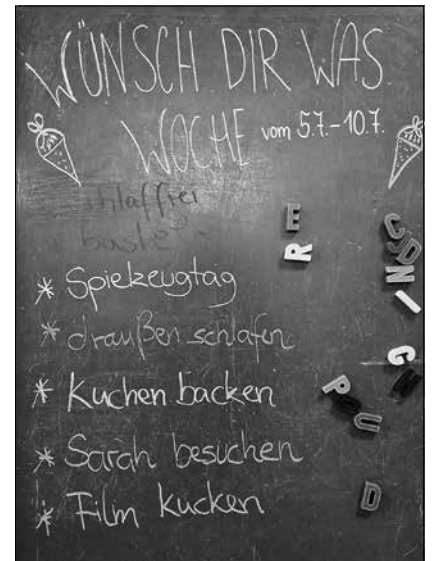 WÜNSCH DIR WAS.
WOCHE vom 5.7.-10.7.
schlaffrei
* Spielzeugtag
* draußen schlafen
* Kuchen backen
* Sarah besuchen
* Film kucken
E
R
C
D
N
I
G
N
P
O
U
D